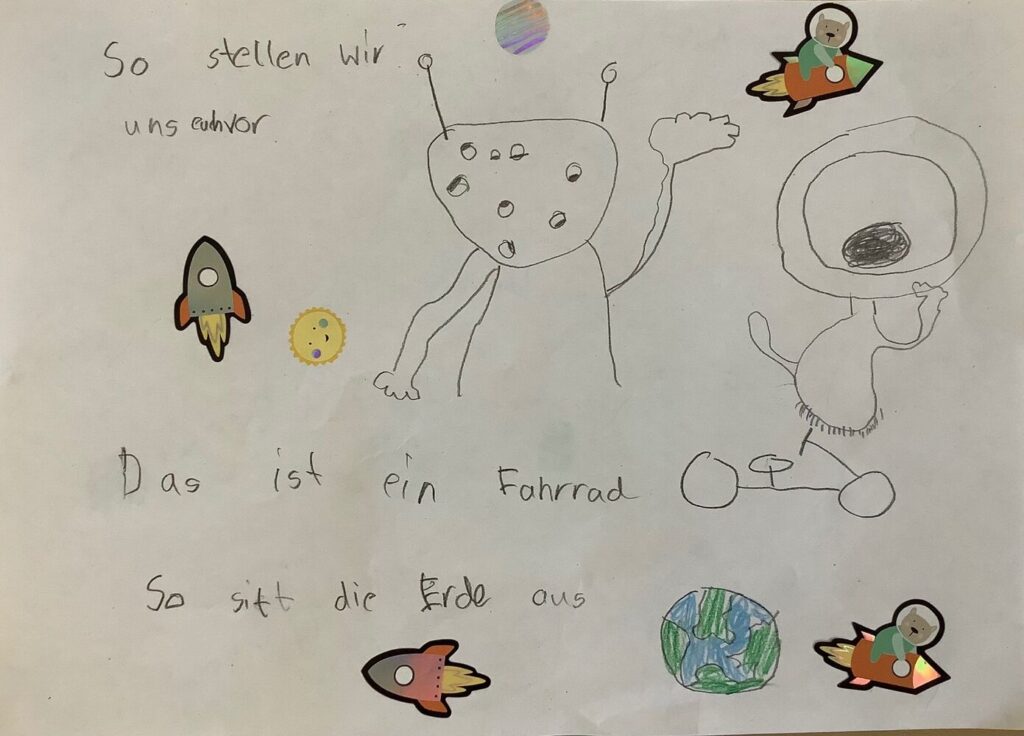 So stellen wir
uns euch vor
Das ist ein Fahrrad
So sitt die Erde aus